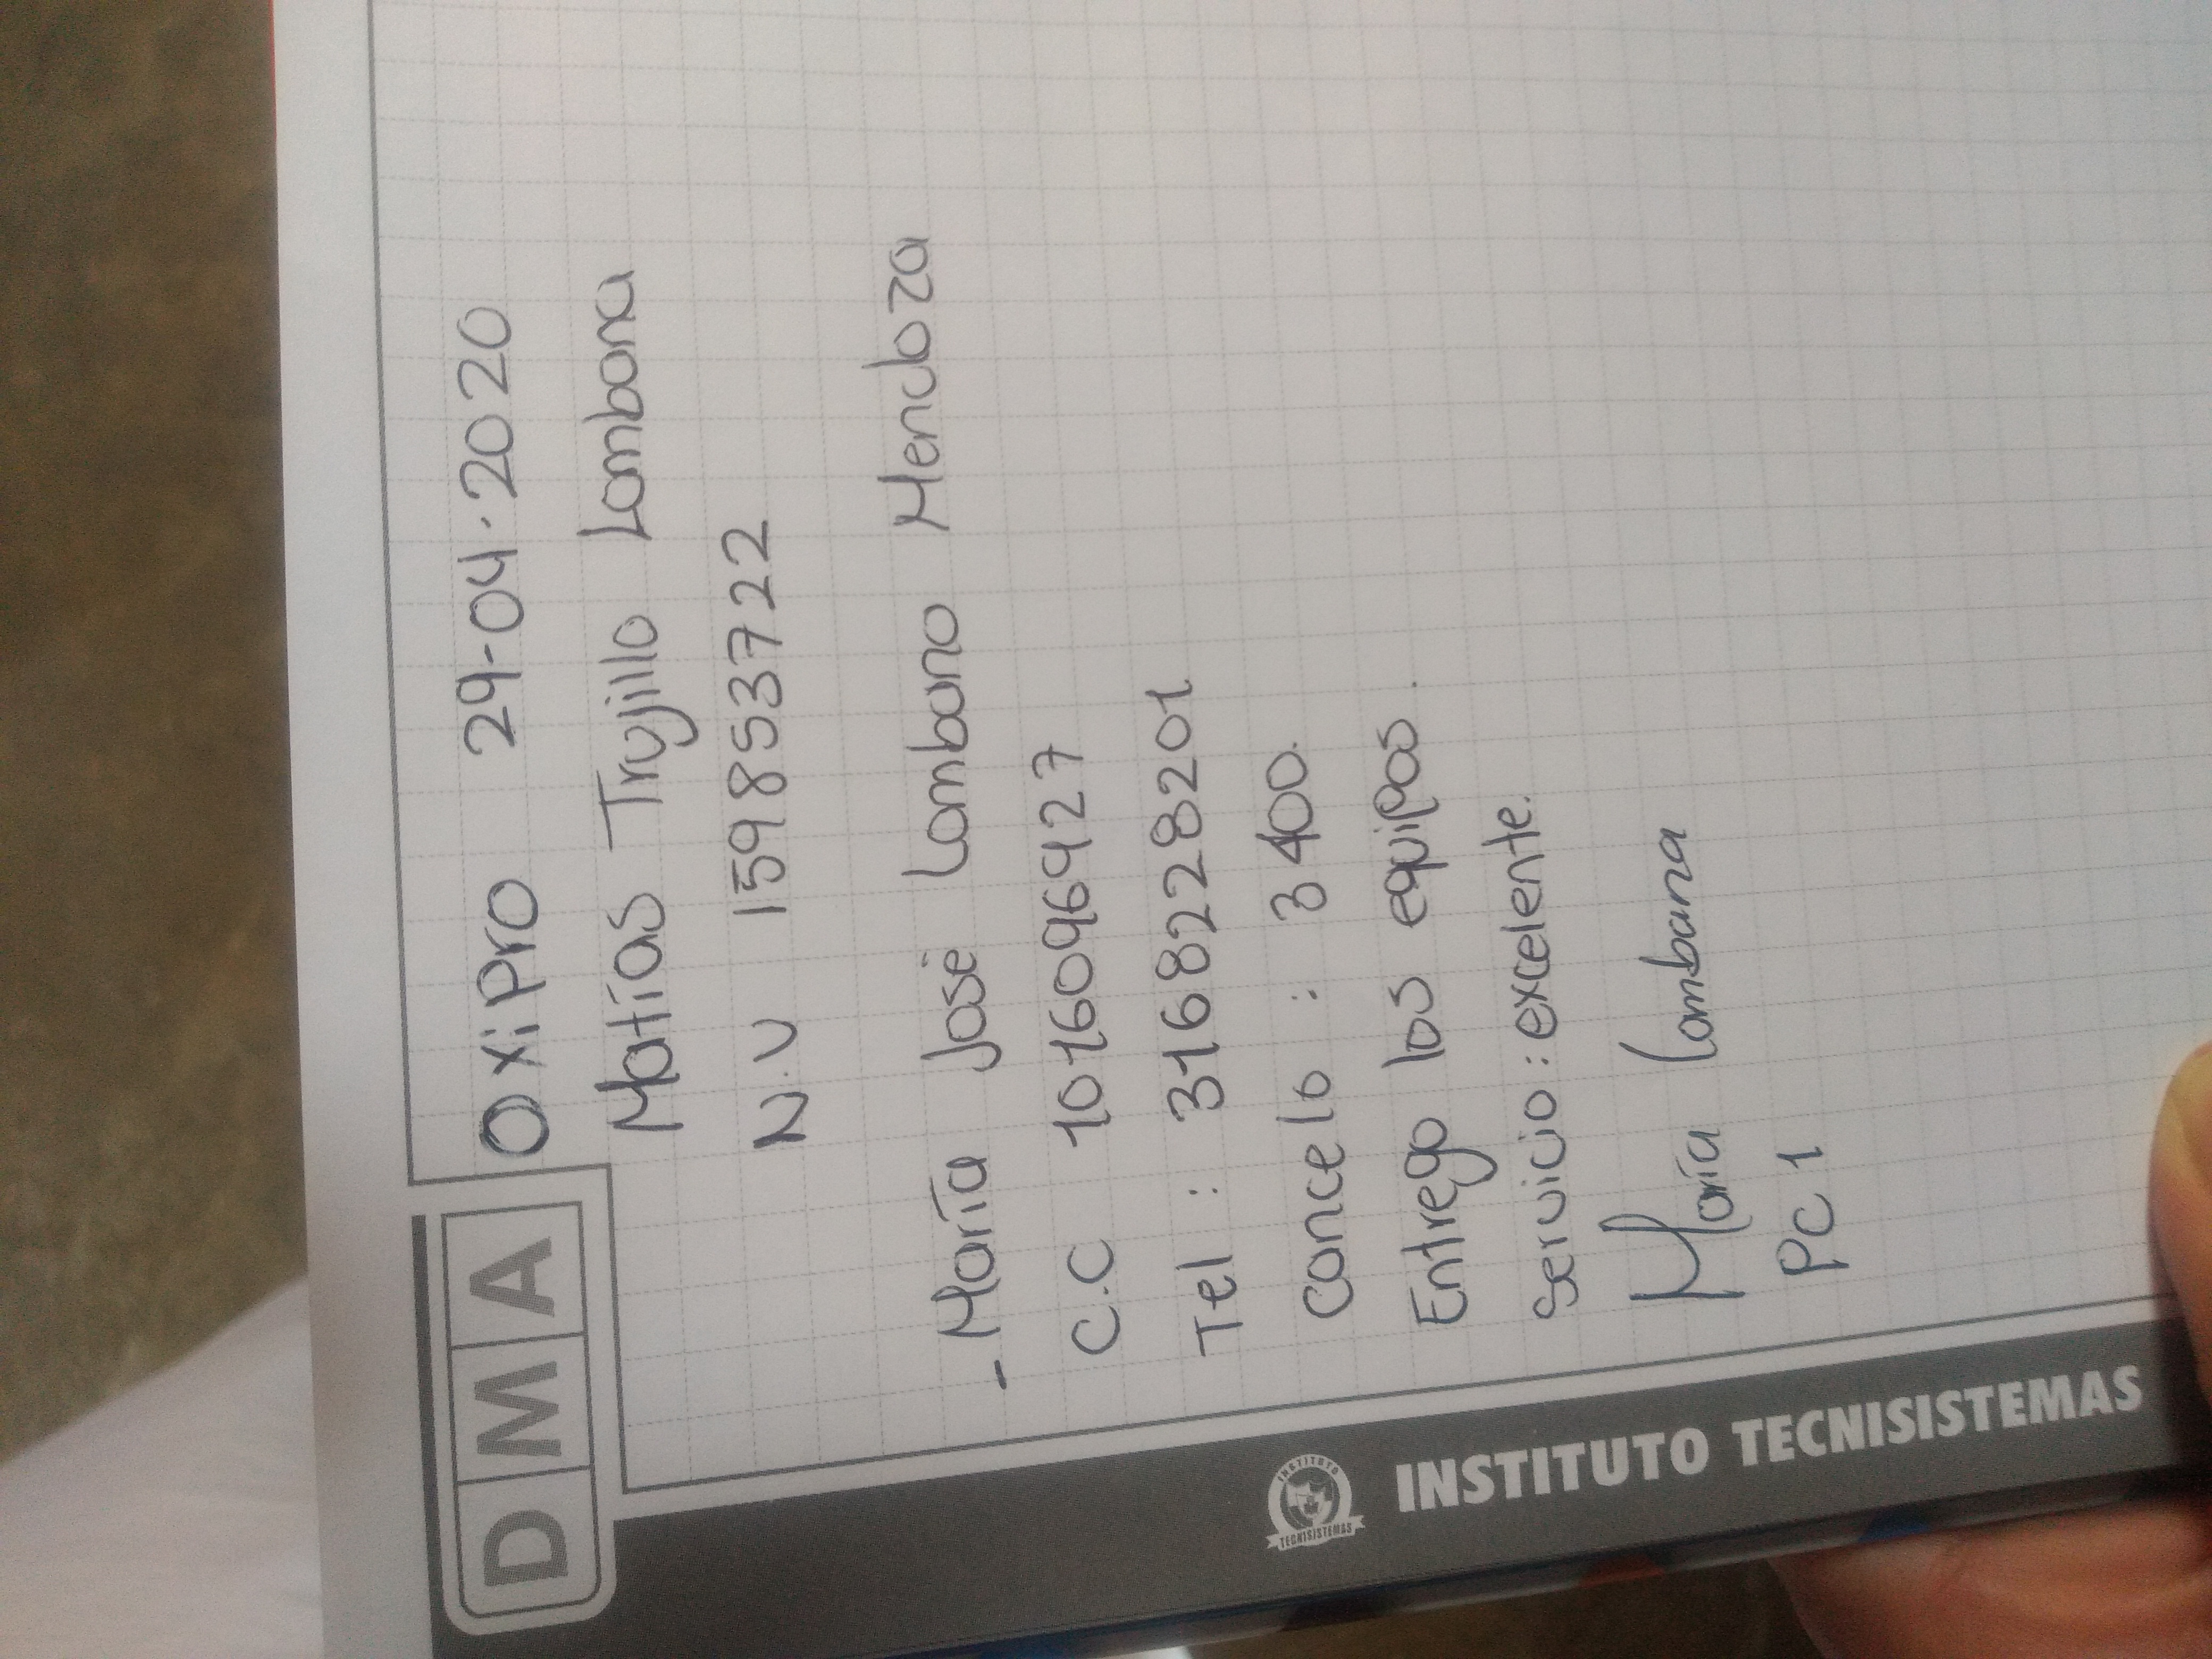 D M A
Oxipro 29-04.2020
Matías Trujillo Lombana
N.V 159853722
- María José Lombano Mendoza
C.C 1016096927
Tel : 3168228201
Cancelo : 3 400.
Entrego los equipos.
Servicio: excelente.
María Lombana
PC 1
INSTITUTO TECNISISTEMAS
INSTITUTO
TECNISISTEMAS